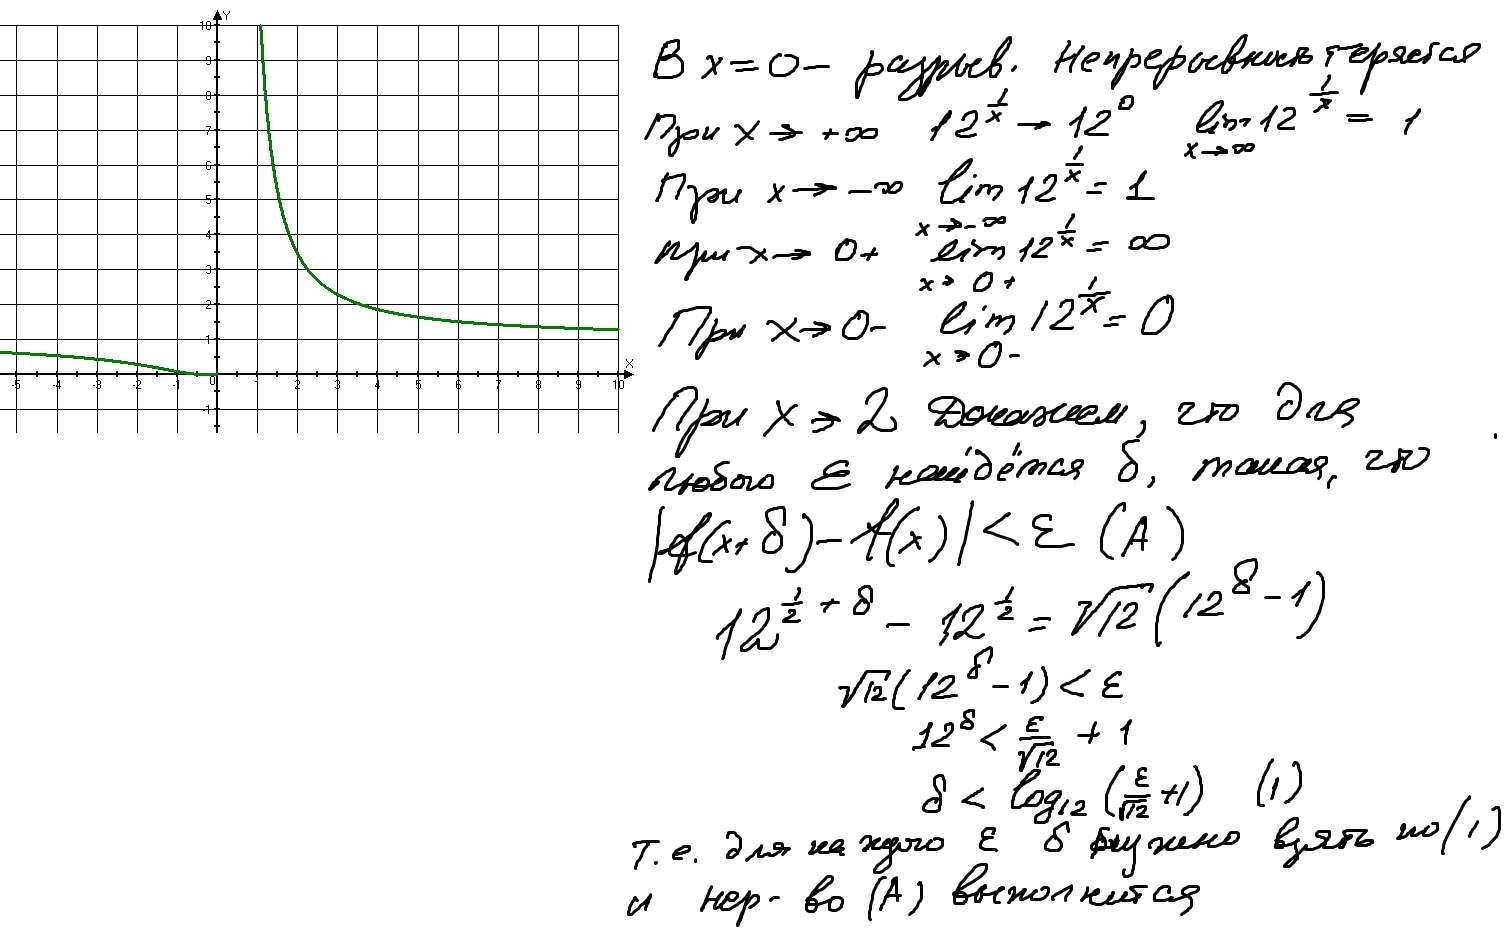 Y
10
9
8
7
6
5
4
3
2
1
-1
-5 -4 -3 -2 -1 0 1 2 3 4 5 6 7 8 9 10
X
В x=0 – разрыв. Непрерывность теряется
При x→+∞ 12^(1/x) → 12^0 lim_(x→∞) 12^(1/x) = 1
При x→-∞ lim_(x→-∞) 12^(1/x) = 1
При x→0+ lim_(x→0+) 12^(1/x) = ∞
При x→0- lim_(x→0-) 12^(1/x) = 0
При x→2 Докажем, что для
любого ε найдётся δ, такая, что
|f(x+δ)-f(x)|<ε (A)
12^(1/2+δ) - 12^(1/2) = √12(12^δ-1)
√12(12^δ-1)<ε
12^δ < ε/√12 + 1
δ < log₁₂(ε/√12+1) (1)
Т.е. для каждого ε δ нужно взять по (1)
и нер-во (A) выполнится